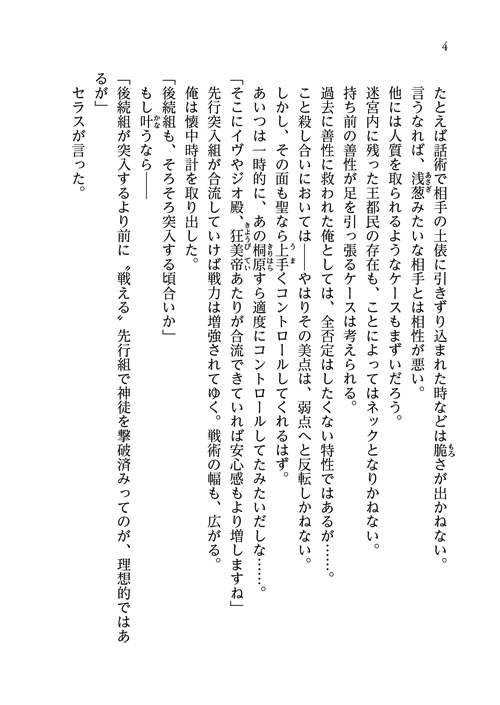 4
たとえば話術で相手の土俵に引きずり込まれた時などは脆さが出かねない。
言うなれば、浅葱みたいな相手とは相性が悪い。
他には人質を取られるようなケースもまずいだろう。
迷宮内に残った王都民の存在も、ことによってはネックとなりかねない。
持ち前の善性が足を引っ張るケースは考えられる。
過去に善性に救われた俺としては、全否定はしたくない特性ではあるが……。
こと殺し合いにおいては――やはりその美点は、弱点へと反転しかねない。
しかし、その面も聖なら上手くコントロールしてくれるはず。
あいつは一時的に、あの桐原すら適度にコントロールしてたみたいだしな……。
「そこにイヴやジオ殿、狂美帝あたりが合流できていれば安心感もより増しますね」
先行突入組が合流していけば戦力は増強されてゆく。戦術の幅も、広がる。
俺は懐中時計を取り出した。
「後続組も、そろそろ突入する頃合いか」
もし叶うなら――
「後続組が突入するより前に〝戦える〟先行組で神徒を撃破済みってのが、理想的ではあ
るが」
セラスが言った。